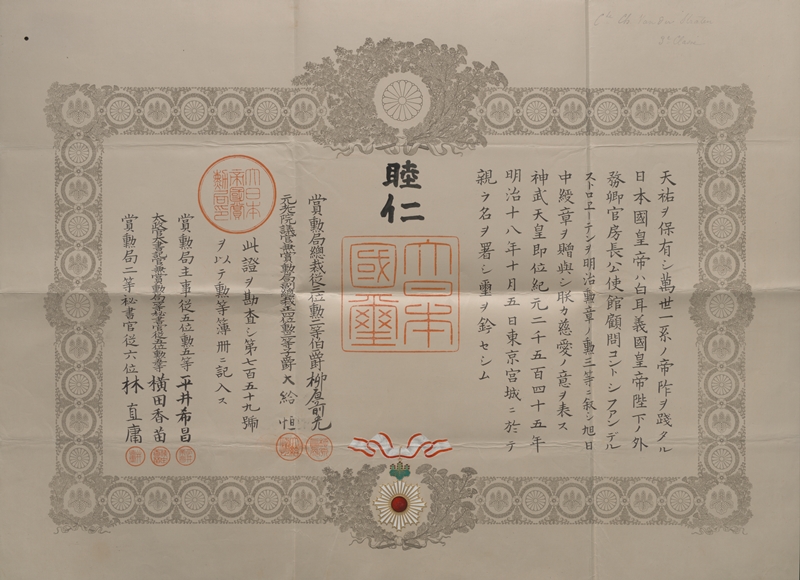 天祐ヲ保有シ萬世一系ノ帝祚ヲ踐タル
日本國皇帝ハ白耳義國皇帝陛下ノ外
務卿官房長公使館顧問コントシファンデル
ストロエーテンヲ明治勲章ノ勲三等ニ叙シ旭日
中綬章ヲ贈與シ朕カ慈愛ノ意ヲ表ス
神武天皇即位紀元二千五百四十五年
明治十八年十月五日東京宮城ニ於テ
親ラ名ヲ署シ璽ヲ鈐セシム
睦仁
大日本國璽
賞勲局總裁從三位勲二等伯爵柳原前光
元老院議官兼賞勲局副總裁正四位勲二等子爵大給恒
大日本帝國賞勲局印
此證ヲ勘査シ第七百五十九號
ヲ以テ勲等簿冊ニ記入ス
賞勲局主事從五位勲五等平井希昌
横田香苗
賞勲局二等秘書官從六位林直庸